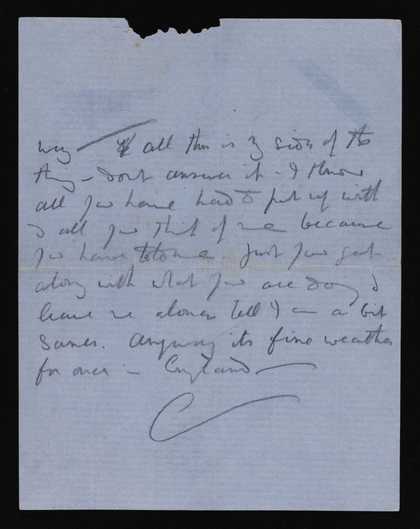 why — all this is my side of the
thing — don't answer it — I know
all you have had to put up with
& all you think of me because
you have told me. Just you get
along with what you are doing &
leave me alone till I am a bit
saner. Anyway its fine weather
for once in England —
C